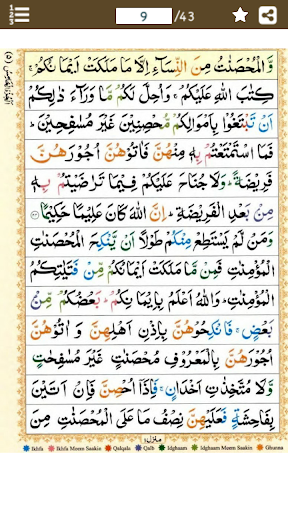 9 /43
وَّالْمُحْصَنٰتُ مِنَ النِّسَآءِ اِلَّا مَا مَلَكَتْ اَيْمَانُكُمْ ۚ
كِتٰبَ اللّٰهِ عَلَيْكُمْ ۚ وَاُحِلَّ لَكُمْ مَّا وَرَآءَ ذٰلِكُمْ
اَنْ تَبْتَغُوْا بِاَمْوَالِكُمْ مُّحْصِنِيْنَ غَيْرَ مُسٰفِحِيْنَ ؕ
فَمَا اسْتَمْتَعْتُمْ بِهٖ مِنْهُنَّ فَاٰتُوْهُنَّ اُجُوْرَهُنَّ
فَرِيْضَةً ؕ وَلَا جُنَاحَ عَلَيْكُمْ فِيْمَا تَرٰضَيْتُمْ بِهٖ
مِنْۢ بَعْدِ الْفَرِيْضَةِ ؕ اِنَّ اللّٰهَ كَانَ عَلِيْمًا حَكِيْمًا ﴿۲۴﴾
وَمَنْ لَّمْ يَسْتَطِعْ مِنْكُمْ طَوْلًا اَنْ يَّنْكِحَ الْمُحْصَنٰتِ
الْمُؤْمِنٰتِ فَمِنْ مَّا مَلَكَتْ اَيْمَانُكُمْ مِّنْ فَتَيٰتِكُمُ
الْمُؤْمِنٰتِ ؕ وَاللّٰهُ اَعْلَمُ بِاِيْمَانِكُمْ ؕ بَعْضُكُمْ مِّنْۢ
بَعْضٍ ۚ فَانْكِحُوْهُنَّ بِاِذْنِ اَهْلِهِنَّ وَاٰتُوْهُنَّ
اُجُوْرَهُنَّ بِالْمَعْرُوْفِ مُحْصَنٰتٍ غَيْرَ مُسٰفِحٰتٍ
وَّلَا مُتَّخِذٰتِ اَخْدَانٍ ۚ فَاِذَاۤ اُحْصِنَّ فَاِنْ اَتَيْنَ
بِفَاحِشَةٍ فَعَلَيْهِنَّ نِصْفُ مَا عَلَى الْمُحْصَنٰتِ مِنَ
منزل۱
Ikhfa Ikhfa Meem Saakin Qalqala Qalb Idghaam Idghaam Meem Saakin Ghunna